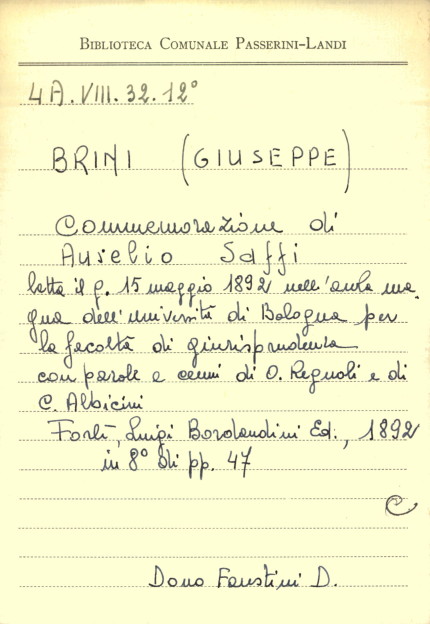 BIBLIOTECA COMUNALE PASSERINI-LANDI
4A.VIII.32.12°
BRINI (GIUSEPPE)
Commemorazione di
Aurelio Saffi
letta il g. 15 maggio 1892 nell'aula ma.
gna dell'università di Bologna per
la facoltà di giurisprudenza
con parole e cenni di O. Regnoli e di
C. Albicini
Forlì, Luigi Borolandini Ed., 1892
in 8° di pp. 47
C
Dono Faustini D.